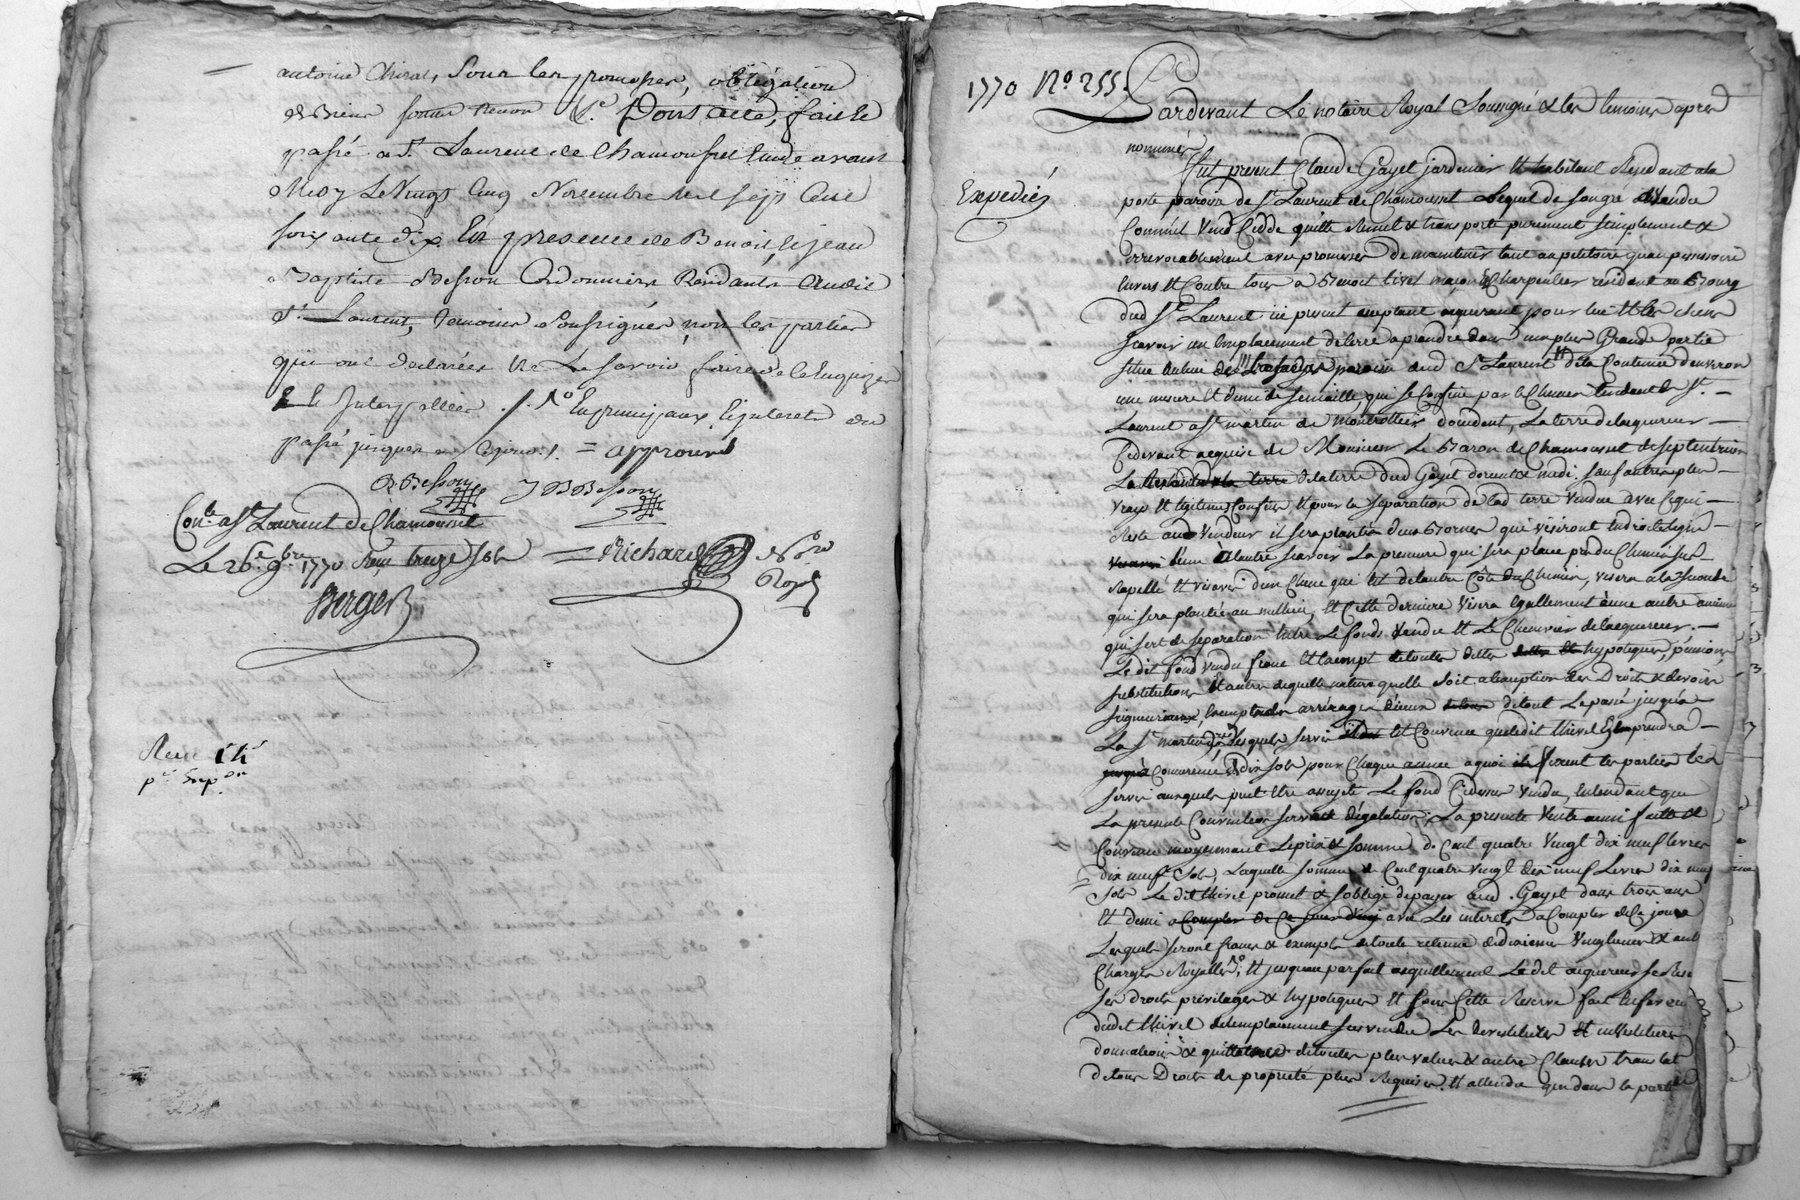 antoine Chirat, Sous les promesses, obligation
de Biens Soum. Renon. &c. Dont acte, fait et
passé a St. Laurent de Chamousset Etude avant
Midy Le Vingt Cinq Novembre mil sept Cent
soixante dix En presence de Benoit, et jean
Baptiste Besson Cordonniers Residants audit
St. Laurent, Temoins Soussignés, non les parties
qui ont declarées ne Le savoir faire de ce Enquizes
Et Interpellées ./. No
passé jusques a ce jour ./. = approuvé
B Besson J B Besson
Conlé a St Laurent de Chamousset
Le 26e 9bre 1770 Reçu treize sols = Richard Nore
Royal
Berger
Reçu
pr Exp.on
1770 No 255.
Pardevant Le notaire Royal Soussigné & les temoins apres
nommés
Expediéz
fut present Claude Gayet jardinier et habitant Residant a la
poste paroisse de St Laurent de Chamousset Lequel de son gré a Vendu
Comm'il Vend Cedde quitte Remet & transporte purement simplement &
irrevocablement avec promesse De maintenir tant au petitoire qu'au possessoire
Envers et Contre tous a Benoit Thivel maçon & Charpentier resident au Bourg
dud St Laurent ici present acceptant acquereur pour lui et les siens
scavoir un Emplacement de terre a prendre dans une plus Grande partie
située au lieu des paroisse dud St Laurent et de la Contenue d'environ
une mesure et demi de semaille, qui se Confine par le Chemin tendant de St. –
Laurent a St martin de Montrottier d'occident, La terre de lacquereur –
Cidevant acquise de Monsieur Le Baron de Chamousset de septentrion
de la terre dud Gayet d'orient & midi. Sauf autres plus –
vrais et legitimes Confins, & pour la separation de lad terre Vendue avec Ce qui –
Reste aud Vendeur il sera planté deux Bornes qui viseront en droite ligne –
d'une a l'autre scavoir La premiere qui sera placé près du Chemin sus
Rapellé et vis avis d'un Chene qui est de l'autre Côté du Chemin, visera a la seconde
qui sera plantée au millieu, et Cette derniere Visera Egallement a une autre
qui sert de separation entre Le fonds Vendu et Le Chenevier de lacquereur. –
Le dit fond vendu franc et Exempt de toutes dettes hypoteques, pensions,
substitutions et autres de quelle nature quelle Soit a l'exeption des Droits & devoirs
seigneuriaux, Exempt des arrerages d'iceux de tout Le passé jusqu'a
La St martin Lesquels servis et Convenu que le dit thivel En prendra –
Concurrence de dix sols pour Chaque année a quoi fixent les parties les
servis auxquels peut être assujeti Le fond Cidessus Vendu, Entendant que
La presente Convention serve d'égalation; La presente Vente ainsi faitte et
Convenue moyennant Le prix & somme de Cent quatre Vingt dix neuf livres
dix neuf Sols, Laquelle somme de Cent quatre Vingt dix neuf Livres dix neuf
Sols Le dit thivel promet & s'oblige de payer aud. Gayet dans trois ans
et demi a Compter de Ce jourd'huy avec Les interets a Compter de Ce jour
Lesquels seront francs & exempts de toute retenue de dixieme Vingtieme & aut
Charges Royalles; et jusqu'au parfait acquittement Ledit acquereur se Rese
Ses droits privileges & hypoteques et sous Cette Reserve fait En faveur
dudit thivel de l'emplacement susvendu Les devestitures et investitures
donnations & quittances de toutes plus values & autre Clauses translat
de tous Droits de propriété plus Requises. Et attendu que dans la partie